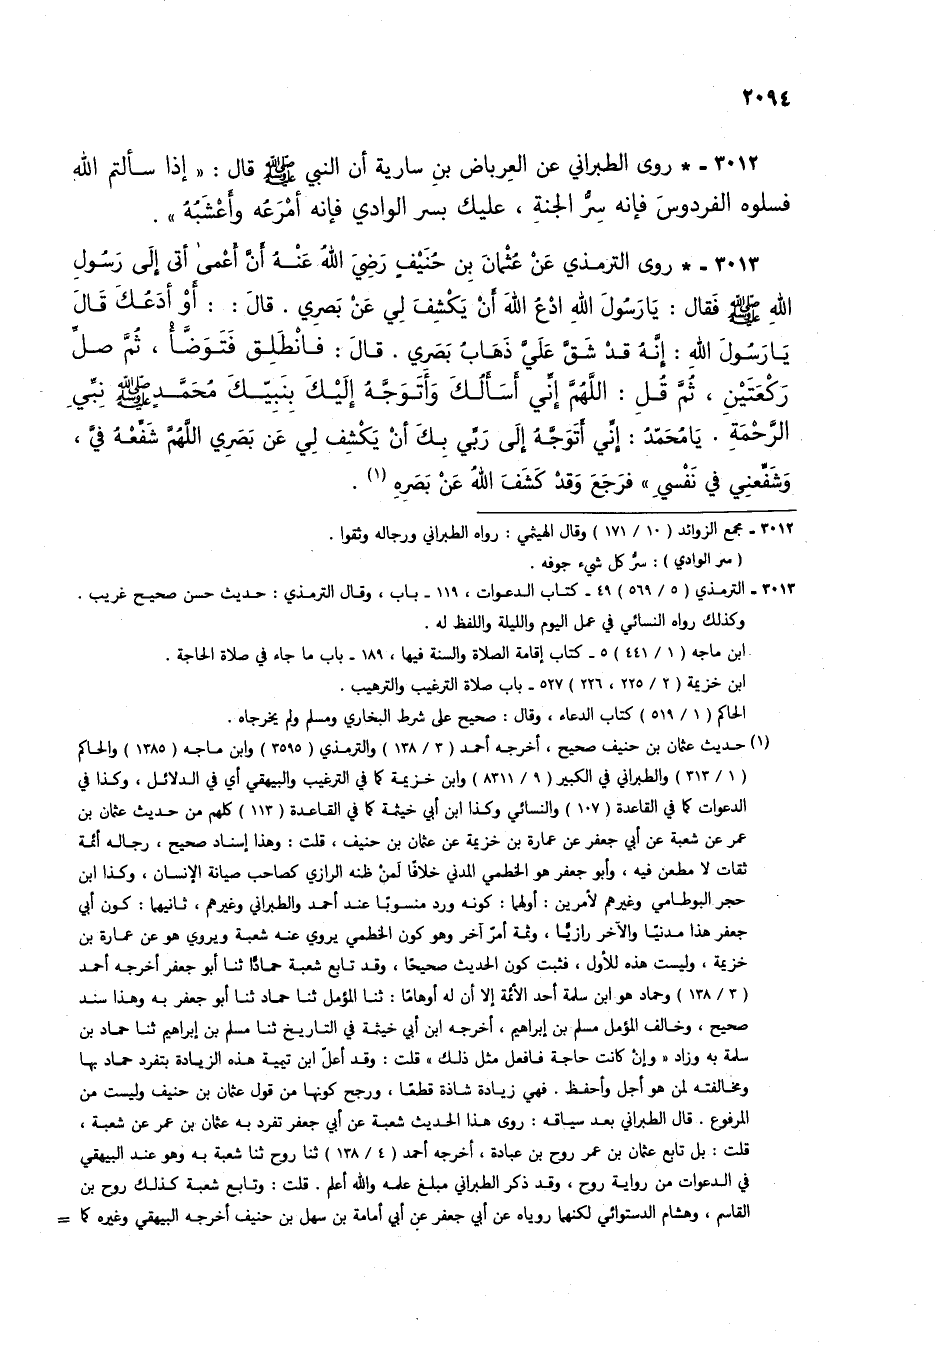 ٢٠٩٤
٣٠١٢ - * روى الطبراني عن العرباض بنِ سارية أن النبي ﷺ قال : « إذا سـألتم اللهَ
فسلوه الفردوسَ فإنه سِرُّ الجنةِ ، عليك بسر الوادي فإنه أَمْرَعُه وأَعْشَبُهُ » .
٣٠١٣ - * روى الترمذي عَنْ عُثْمانَ بنِ حُنَيْفٍ رَضِيَ اللهُ عَنْـهُ أَنَّ أَعْمىٰ أتى إلَى رَسُولِ
اللهِ ﷺ فَقال : يَارَسُولَ اللهِ ادْعُ اللهَ أَنْ يَكْشِفَ لِي عَنْ بَصَرِي . قالَ : : أَوْ أَدَعُـكَ قَالَ
يَـارَسُـولَ اللهِ : إِنَّـهُ قَـدْ شَقَّ عَلَيَّ ذَهَابُ بَصَرِي . قـالَ : فَـانْطَلِـقِ فَتَـوَضَّـأْ ، ثُمَّ صـلِّ
رَكْعَتَيْنِ ، ثُمَّ قُـلِ : اللَّهُمَّ إِنِّي أَسَـأَلُـكَ وَأَتَـوَجَّـهُ إِلَيْـكَ بِنَبِيِّـكَ مُحَمَّـدٍ ﷺ نَبِّيِ
الرَّحْمَةِ . يَامُحَمّدُ : إنِّي أَتَوَجَّـهُ إلَى رَبِّي بِـكَ أَنْ يَكْشِفَ لِي عَن بَصَرِي اللَّهُمَّ شَفِّعْـهُ فيَّ ،
وَشَفِّعنِي في نَفْسِي » فرَجَعَ وَقدْ كَشَفَ اللهُ عَنْ بَصَرِهِ (١) .
٣٠١٢ - مجمع الزوائد ( ١٠ / ١٧١ ) وقال الهيثمي : رواه الطبراني ورجاله وثقوا .
( سر الوادي ) : سرُّ كل شيء جوفه .
٣٠١٣ - الترمـذي ( ٥ / ٥٦٩ ) ٤٩ - كتـاب الـدعـوات ، ١١٩ - بـاب ، وقـال الترمـذي : حـديث حسن صحيـح غريب .
وكذلك رواه النسائي في عمل اليوم والليلة واللفظ له .
ابن ماجه ( ١ / ٤٤١ ) ٥ - كتاب إقامة الصلاة والسنة فيها ، ١٨٩ - باب ما جاء في صلاة الحاجة .
ابن خزيمة ( ٢ / ٢٢٥ ، ٢٢٦ ) ٥٢٧ - باب صلاة الترغيب والترهيب .
الحاكم ( ١ / ٥١٩ ) كتاب الدعاء ، وقال : صحيح على شرط البخاري ومسلم ولم يخرجاه .
(١) حـديث عثمان بن حنيف صحيح ، أخرجـه أحمـد ( ٣ / ١٣٨ ) والترمـذي ( ٣٥٩٥ ) وابن مـاجـه ( ١٣٨٥ ) والحـاكم
( ١ / ٣١٣ ) والطبراني في الكبير ( ٩ / ٨٣١١ ) وابن خـزيمـة كما في الترغيب والبيهقي أي في الـدلائـل ، وكـذا في
الدعوات كما في القاعدة ( ١٠٧ ) والنسائي وكذا ابن أبي خيثمة كما في القـاعـدة ( ١١٣ ) كلهم من حـديث عثمان بن
عمر عن شعبة عن أبي جعفر عن عمارة بن خزيمة عن عثمان بن حنيف ، قلت : وهـذا إسنـاد صحيح ، رجـالـه أئمـة
ثقات لا مطعن فيه ، وأبو جعفر هو الخطمي المدني خلافًا لَمنْ ظنه الرازي كصاحب صيانة الإنسان ، وكـذا ابن
حجر البوطـامي وغيرهم لأمرين : أولهما : كونـه ورد منسوبًـا عنـد أحمـد والطبراني وغيرهم ، ثـانيهما : كـون أبي
جعفر هذا مـدنيًـا والآخر رازيًّـا ، وثمة أمرّ آخر وهو كون الخطمي يروي عنـه شعبـة ويروي هو عن عمـارة بن
خزيمة ، وليست هذه للأول ، فثبت كون الحديث صحيحًا ، وقـد تـابع شعبـة حمـادًا ثنـا أبو جعفر أخرجـه أحمـد
( ٣ / ١٣٨ ) وحمـاد هو ابن سلمة أحد الأئمة إلا أن له أوهامًـا : ثنـا المؤمل ثنـا حماد ثنـا أبو جعفر بـه وهـذا سنـد
صحيح ، وخـالف المؤمل مسلم بن إبراهيم ، أخرجـه ابن أبي خيثمـة في التـاريـخ ثنـا مسلم بن إبراهيم ثنـا حمـاد بن
سلمة به وزاد « وإنْ كانت حاجة فـافعل مثل ذلـك » قلت : وقـد أعلّ ابن تيميـة هـذه الزيـادة بتفرد حمـاد بهـا
ومخـالفتـه لمن هـو أجل وأحفـظ . فهي زيـادة شاذة قطعًـا ، ورجح كونهـا من قول عثمان بن حنيف وليست من
المرفوع . قال الطبراني بعـد سيـاقـه : روى هـذا الحديث شعبة عن أبي جعفر تفرد بـه عثمان بن عمر عن شعبـة ،
قلت : بل تابع عثمان بن عمر روح بن عبادة ، أخرجه أحمد ( ٤ / ١٣٨ ) ثنا روح ثنا شعبة بـه وهو عنـد البيهقي
في الـدعوات من روايـة روح ، وقـد ذكر الطبراني مبلـغ علمـه والله أعلم . قلت : وتـابـع شعبـة كـذلـك روح بن
القاسم ، وهشام الدستوائي لكنهما روياه عن أبي جعفر عن أبي أمامة بن سهل بن حنيف أخرجـه البيهقي وغيره كما =